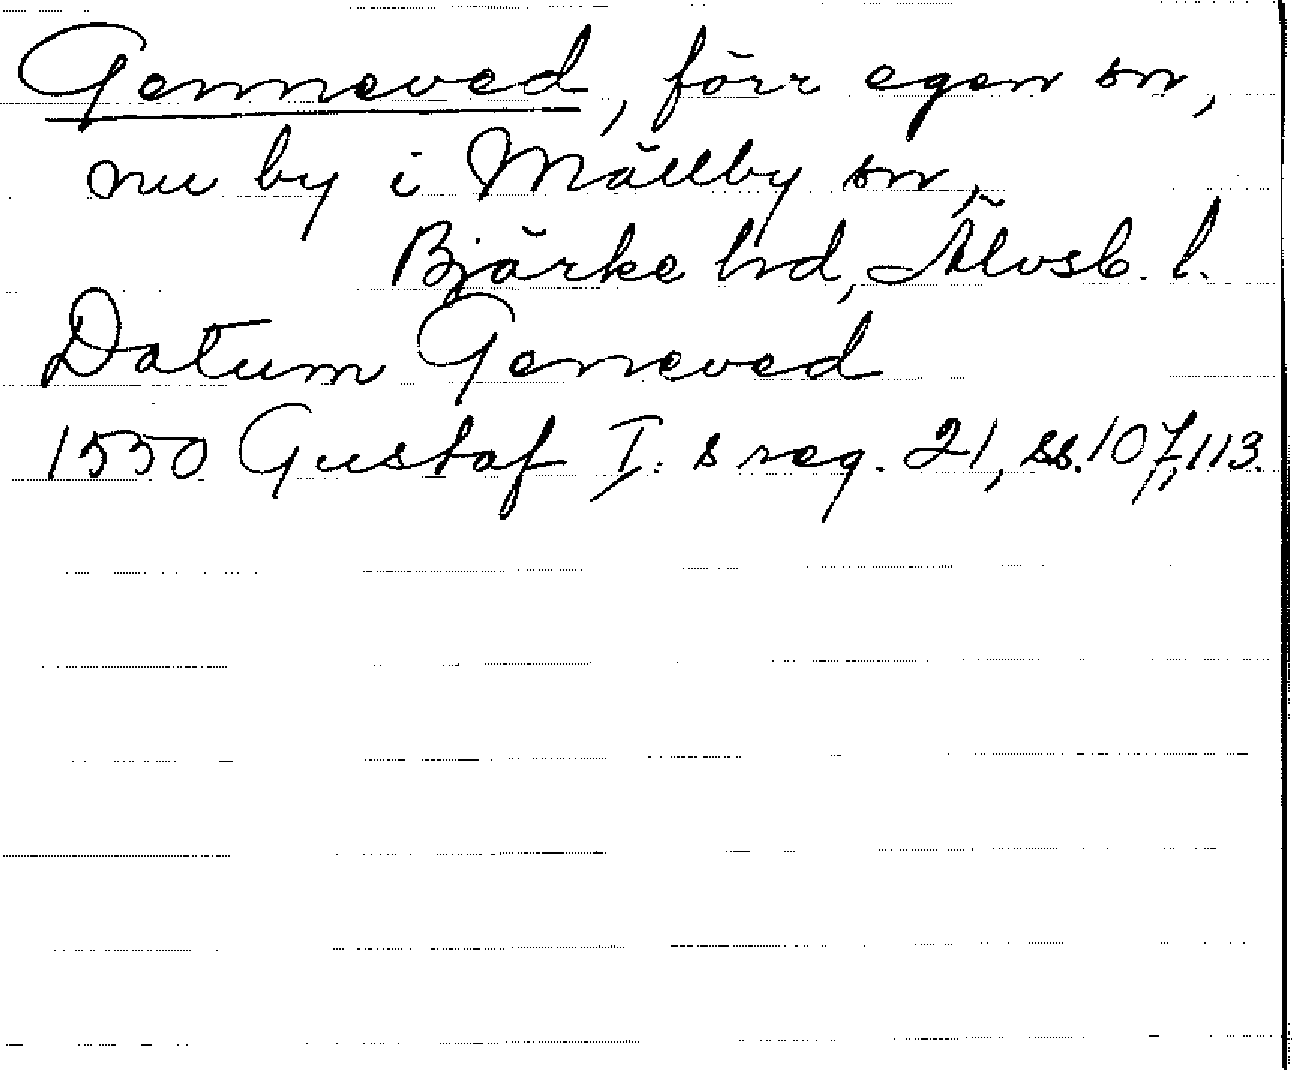 Genneved, förr egen sn,
nu by i Mällby sn,
Bjärke hd, Älvsb. l.
Datum Genneved
1550 Gustaf I:s reg. 21, ss. 107, 113.